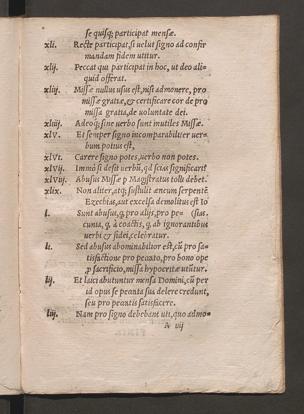 se quisq; participat mensæ.
xli. Recte participat, si uelut signo ad confir
mandam fidem utitur.
xlij. Peccat qui participat in hoc, ut deo ali-
quid offerat.
xliij. Missæ nullus usus est, nisi admonere, pro
missæ gratiæ, & certificare cor de pro
missa gratia, de uoluntate dei.
xliiij. Adeoq; sine uerbo sunt inutiles Missæ.
xlv. Et semper signo incomparabiliter uer-
bum potius est,
xlvi. Carere signo potes, uerbo non potes.
xlvij. Immo si desit uerbũ, qd scias significari?
xlvij. Abusus Missæ p Magistratus tolli debet.
xlix. Non aliter, atq; sustulit æneum serpentẽ
Ezechias, aut excelsa demolitus est Io
l. Sunt abusus, q, pro alijs, pro pe= (sias.
cunia, q, à coactis, q, ab ignorantibus
uerbi & fidei, celebratur.
li. Sed abusus abominabilior est, cũ pro sa-
tisfactione pro peccato, pro bono ope
p sacrificio, missa hypocritæ utũtur.
lij. Et laici abutuntur mensa Domini, cũ per
id opus se peccata sua delere credunt,
seu pro peccatis satisfacere.
liij. Nam pro signo debebant uti, quo admo-
& vij